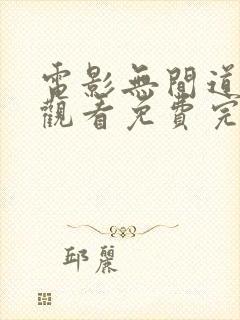 電影無間道
觀看免費完
邱麗